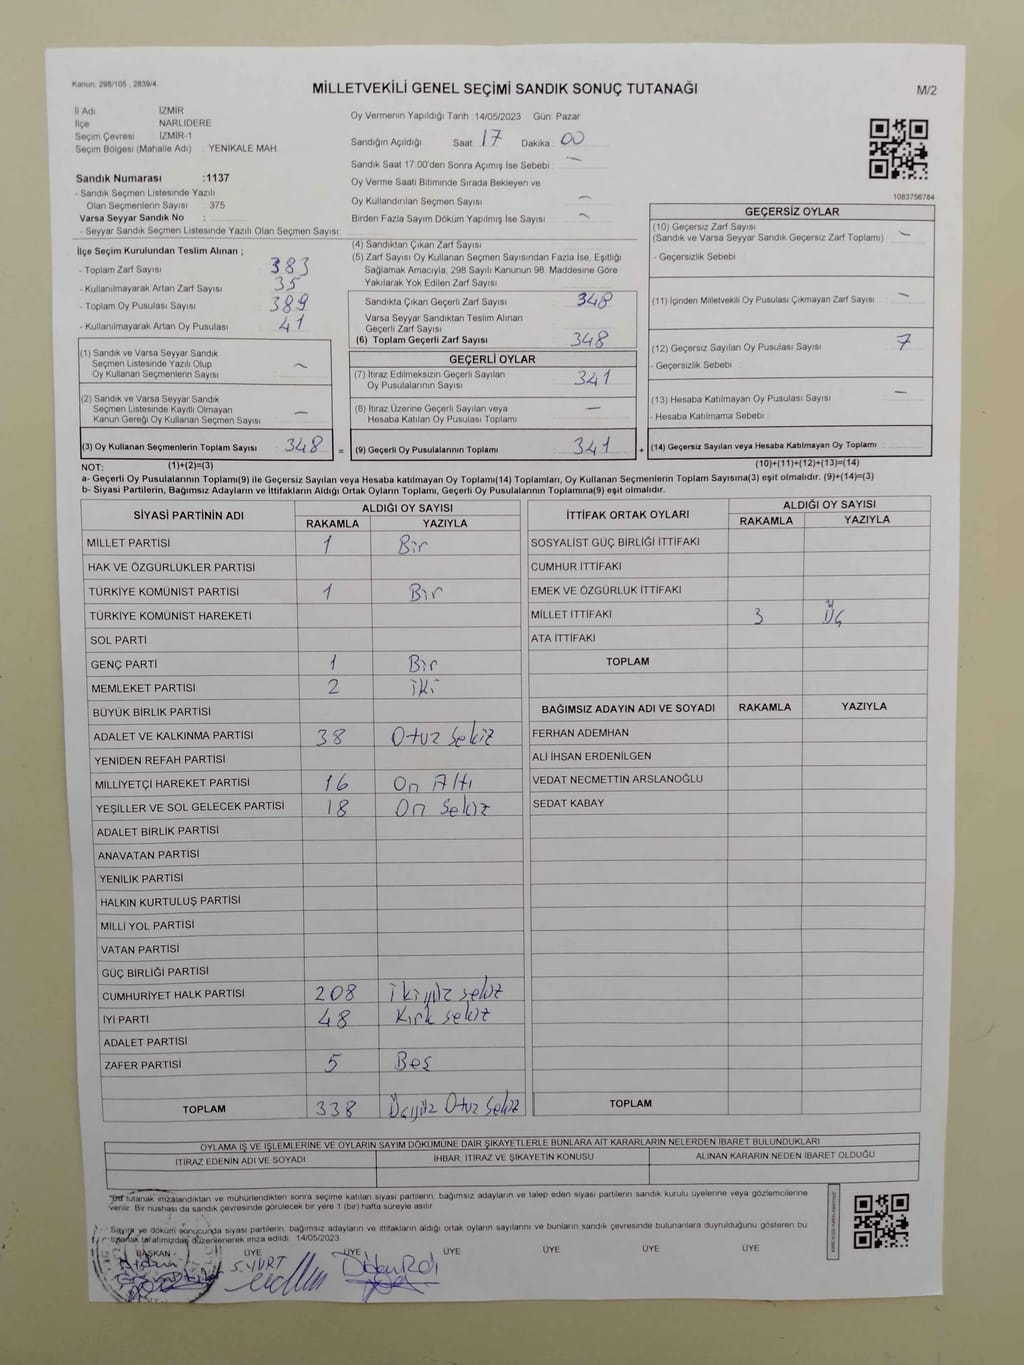 Kanun: 298/105 , 2839/4
MİLLETVEKİLİ GENEL SEÇİMİ SANDIK SONUÇ TUTANAĞI
M/2
İl Adı İZMİR
İlçe NARLIDERE
Seçim Çevresi İZMİR-1
Seçim Bölgesi (Mahalle Adı) YENİKALE MAH.
Sandık Numarası :1137
- Sandık Seçmen Listesinde Yazılı
Olan Seçmenlerin Sayısı : 375
Varsa Seyyar Sandık No :
- Seyyar Sandık Seçmen Listesinde Yazılı Olan Seçmen Sayısı:
Oy Vermenin Yapıldığı Tarih :14/05/2023 Gün: Pazar
Sandığın Açıldığı Saat : 17 Dakika : 00
Sandık Saat 17:00'den Sonra Açılmış İse Sebebi : —
Oy Verme Saati Bitiminde Sırada Bekleyen ve
Oy Kullandırılan Seçmen Sayısı : —
Birden Fazla Sayım Döküm Yapılmış İse Sayısı : —
1083756784
İlçe Seçim Kurulundan Teslim Alınan ;
- Toplam Zarf Sayısı : 383
- Kullanılmayarak Artan Zarf Sayısı : 35
- Toplam Oy Pusulası Sayısı : 389
- Kullanılmayarak Artan Oy Pusulası : 41
(1) Sandık ve Varsa Seyyar Sandık
Seçmen Listesinde Yazılı Olup
Oy Kullanan Seçmenlerin Sayısı : —
(2) Sandık ve Varsa Seyyar Sandık
Seçmen Listesinde Kayıtlı Olmayan
Kanun Gereği Oy Kullanan Seçmen Sayısı : —
(3) Oy Kullanan Seçmenlerin Toplam Sayısı : 348 =
(4) Sandıktan Çıkan Zarf Sayısı :
(5) Zarf Sayısı Oy Kullanan Seçmen Sayısından Fazla İse, Eşitliği
Sağlamak Amacıyla, 298 Sayılı Kanunun 98. Maddesine Göre
Yakılarak Yok Edilen Zarf Sayısı :
Sandıkta Çıkan Geçerli Zarf Sayısı : 348
Varsa Seyyar Sandıktan Teslim Alınan
Geçerli Zarf Sayısı :
(6) Toplam Geçerli Zarf Sayısı : 348
GEÇERLİ OYLAR
(7) İtiraz Edilmeksizin Geçerli Sayılan
Oy Pusulalarının Sayısı : 341
(8) İtiraz Üzerine Geçerli Sayılan veya
Hesaba Katılan Oy Pusulası Toplamı : —
(9) Geçerli Oy Pusulalarının Toplamı : 341 +
GEÇERSİZ OYLAR
(10) Geçersiz Zarf Sayısı
(Sandık ve Varsa Seyyar Sandık Geçersiz Zarf Toplamı) : —
- Geçersizlik Sebebi :
(11) İçinden Milletvekili Oy Pusulası Çıkmayan Zarf Sayısı : —
(12) Geçersiz Sayılan Oy Pusulası Sayısı : 7
- Geçersizlik Sebebi :
(13) Hesaba Katılmayan Oy Pusulası Sayısı : —
- Hesaba Katılmama Sebebi :
(14) Geçersiz Sayılan veya Hesaba Katılmayan Oy Toplamı :
NOT: (1)+(2)=(3) (10)+(11)+(12)+(13)=(14)
a- Geçerli Oy Pusulalarının Toplamı(9) ile Geçersiz Sayılan veya Hesaba katılmayan Oy Toplamı(14) Toplamları, Oy Kullanan Seçmenlerin Toplam Sayısına(3) eşit olmalıdır. (9)+(14)=(3)
b- Siyasi Partilerin, Bağımsız Adayların ve İttifakların Aldığı Ortak Oyların Toplamı, Geçerli Oy Pusulalarının Toplamına(9) eşit olmalıdır.
SİYASİ PARTİNİN ADI ALDIĞI OY SAYISI
RAKAMLA YAZIYLA
MİLLET PARTİSİ 1 Bir
HAK VE ÖZGÜRLÜKLER PARTİSİ
TÜRKİYE KOMÜNİST PARTİSİ 1 Bir
TÜRKİYE KOMÜNİST HAREKETİ
SOL PARTİ
GENÇ PARTİ 1 Bir
MEMLEKET PARTİSİ 2 iki
BÜYÜK BİRLİK PARTİSİ
ADALET VE KALKINMA PARTİSİ 38 Otuz Sekiz
YENİDEN REFAH PARTİSİ
MİLLİYETÇİ HAREKET PARTİSİ 16 On Altı
YEŞİLLER VE SOL GELECEK PARTİSİ 18 On Sekiz
ADALET BİRLİK PARTİSİ
ANAVATAN PARTİSİ
YENİLİK PARTİSİ
HALKIN KURTULUŞ PARTİSİ
MİLLİ YOL PARTİSİ
VATAN PARTİSİ
GÜÇ BİRLİĞİ PARTİSİ
CUMHURİYET HALK PARTİSİ 208 ikiyüz sekiz
İYİ PARTİ 48 Kırk sekiz
ADALET PARTİSİ
ZAFER PARTİSİ 5 Beş
TOPLAM 338 Üçyüz Otuz Sekiz
İTTİFAK ORTAK OYLARI ALDIĞI OY SAYISI
RAKAMLA YAZIYLA
SOSYALİST GÜÇ BİRLİĞİ İTTİFAKI
CUMHUR İTTİFAKI
EMEK VE ÖZGÜRLÜK İTTİFAKI
MİLLET İTTİFAKI 3 Üç
ATA İTTİFAKI
TOPLAM
BAĞIMSIZ ADAYIN ADI VE SOYADI RAKAMLA YAZIYLA
FERHAN ADEMHAN
ALİ İHSAN ERDENİLGEN
VEDAT NECMETTİN ARSLANOĞLU
SEDAT KABAY
TOPLAM
OYLAMA İŞ VE İŞLEMLERİNE VE OYLARIN SAYIM DÖKÜMÜNE DAİR ŞİKAYETLERLE BUNLARA AİT KARARLARIN NELERDEN İBARET BULUNDUKLARI
İTİRAZ EDENİN ADI VE SOYADI İHBAR, İTİRAZ VE ŞİKAYETİN KONUSU ALINAN KARARIN NEDEN İBARET OLDUĞU
*Bu tutanak imzalandıktan ve mühürlendikten sonra seçime katılan siyasi partilerin, bağımsız adayların ve talep eden siyasi partilerin sandık kurulu üyelerine veya gözlemcilerine
verilir. Bir nüshası da sandık çevresinde görülecek bir yere 1 (bir) hafta süreyle asılır
Sayım ve döküm sonucunda siyasi partilerin, bağımsız adayların ve ittifakların aldığı ortak oyların sayılarını ve bunların sandık çevresinde bulunanlara duyurulduğunu gösteren bu
tutanak tarafımızdan düzenlenerek imza edildi. 14/05/2023
BAŞKAN ÜYE ÜYE ÜYE ÜYE ÜYE ÜYE
S.YURT